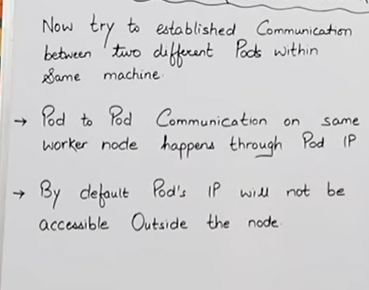 Now try to established Communication
between two different Pods within
Same machine.
→ Pod to Pod Communication on same
worker node happens through Pod IP
→ By default Pod's IP will not be
accessible Outside the node.